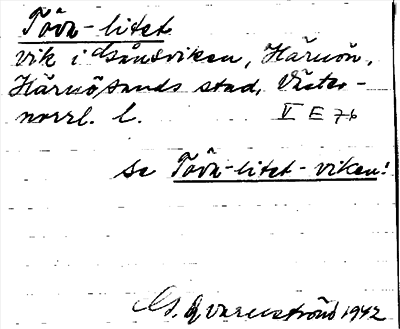 Tövä-litet
Vik i Gånsviken, Härnön,
Härnösands stad, Väster-
norrl. l. V E 76
se Tövä-litet-viken!
Qvarnström 1942